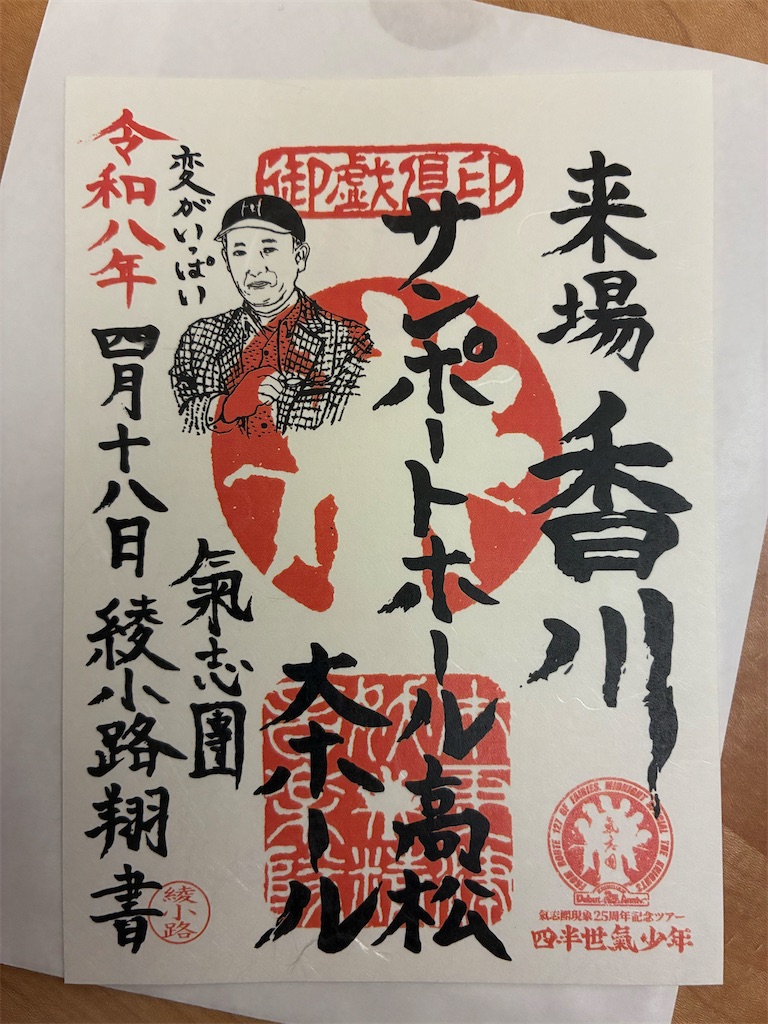 御戯倶印
来場
香川
サンポートホール高松
大ホール
変がいっぱい
氣志團
令和八年四月十八日 綾小路翔書
綾小路
氣志團
Debut 25th Anniv.
氣志團現象25周年記念ツアー
四半世氣少年